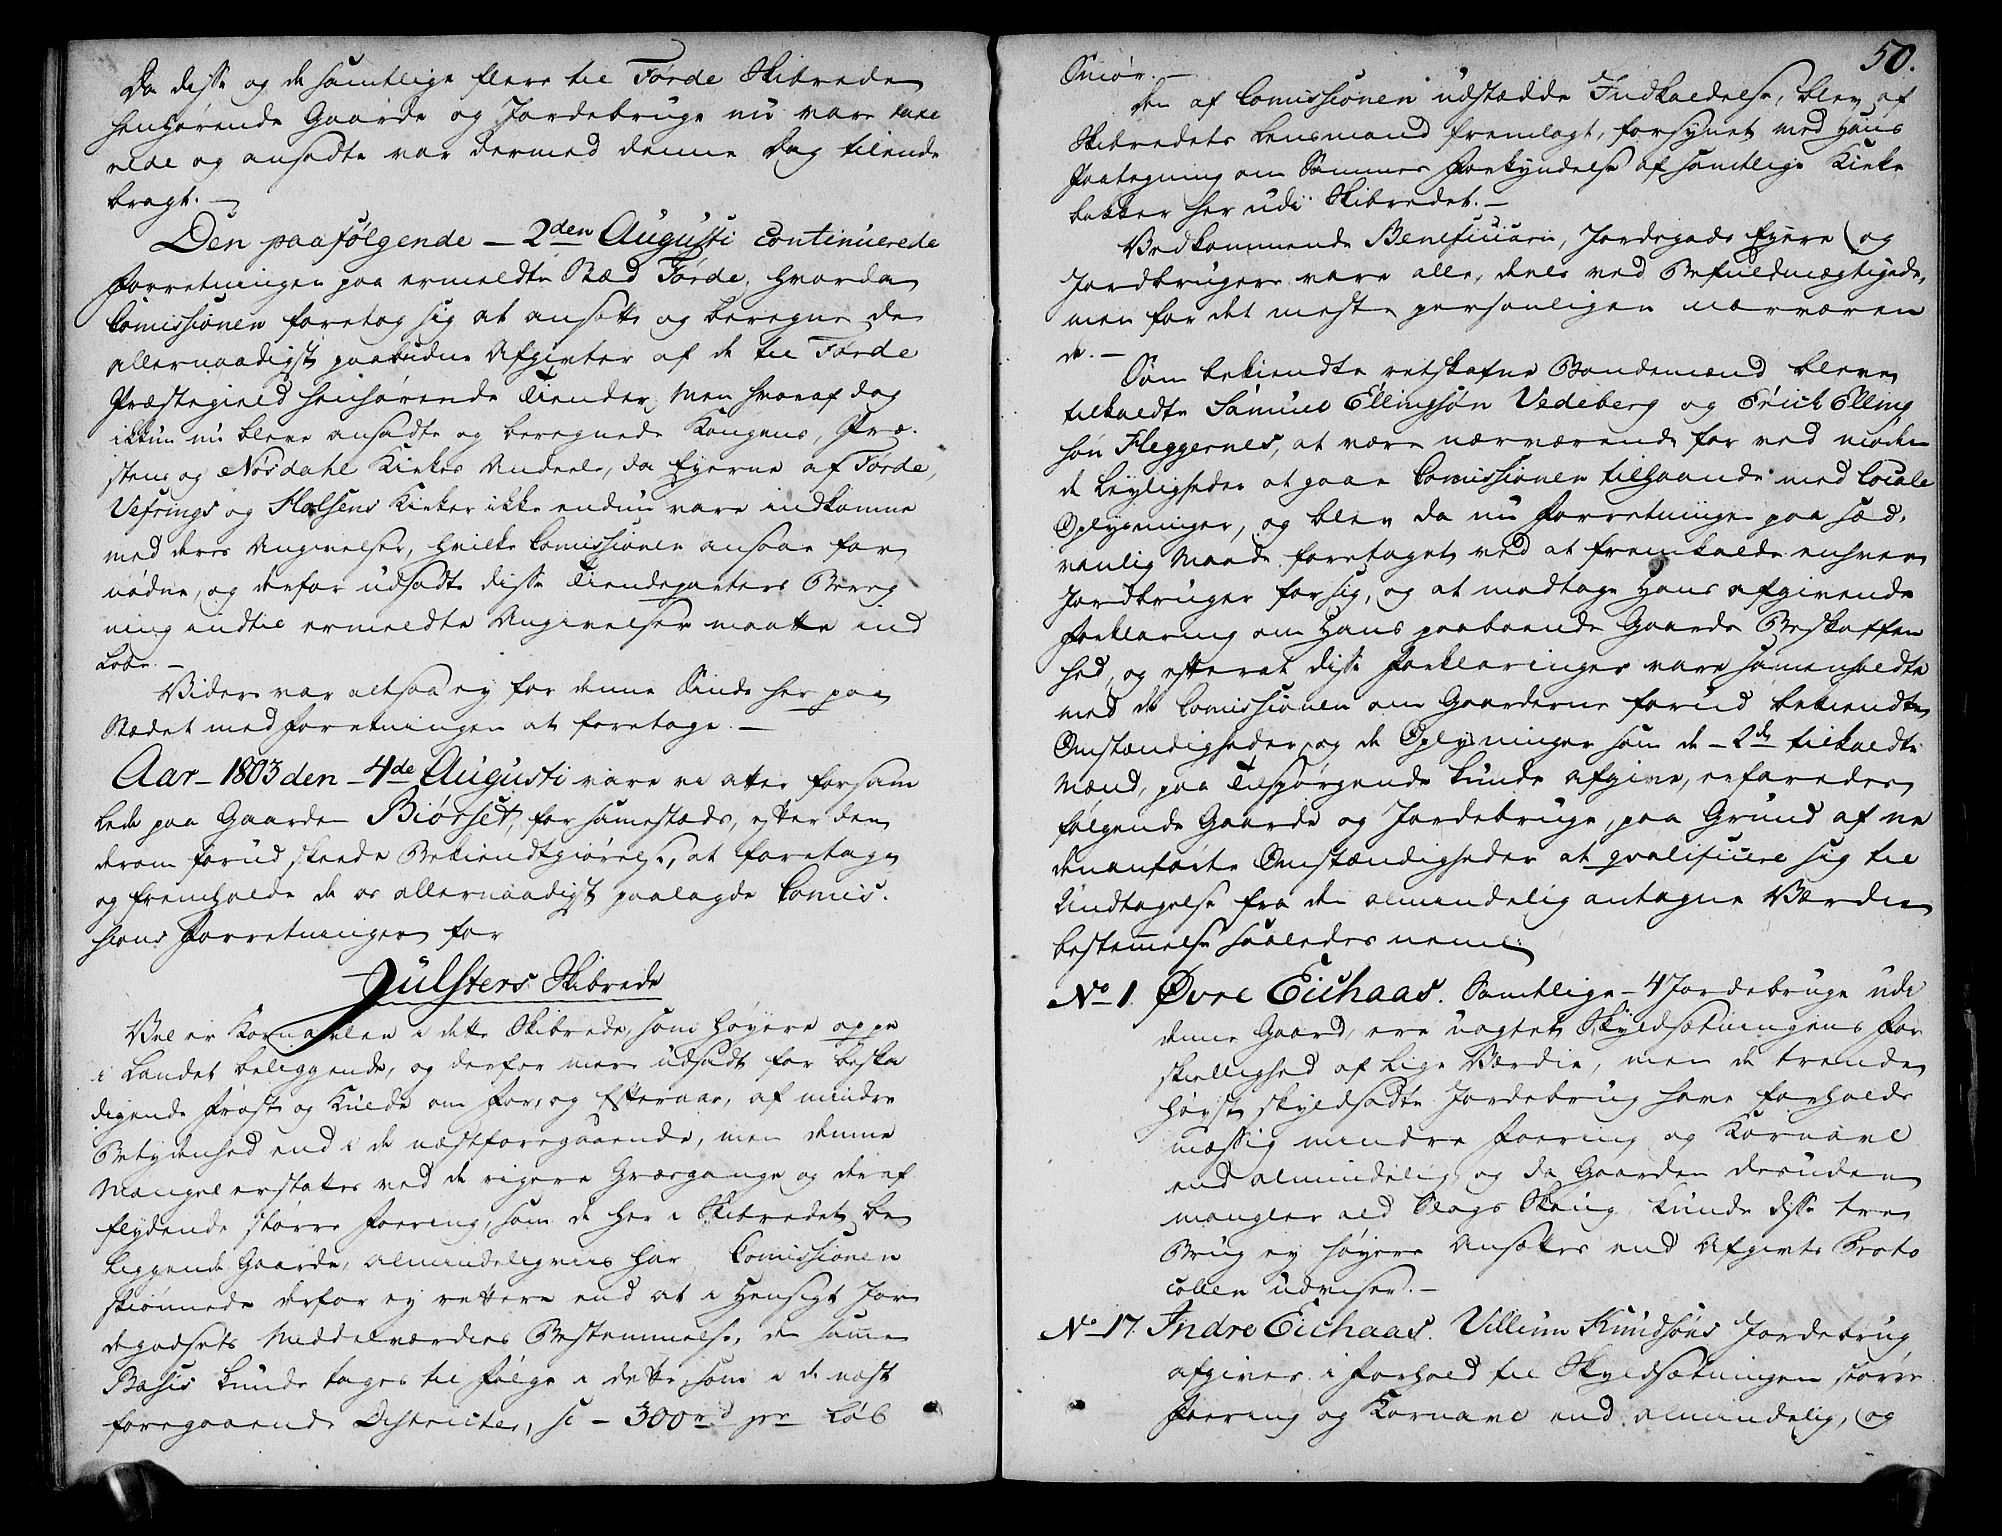 Da disse og de samtlige flere til Førde Skibrede
henhørende Gaarde og Jordebruge nu vare taxe
rede og ansadte var dermed denne Dag tilende
bragt. —
Den paafølgende — 2den Augusti Continuerede
Forretningen paa ermeldte Stæd Førde, hvorda
Comissionen foretog sig at ansætte og beregne de
allernaadigst paabudne Afgivter af de til Førde
Præstegield henhørende Tiender, Men hvoraf dog
ikkun nu bleve ansadte og beregnede Kongens, Præ-
stens og Nosdahl Kirkes Andeele, da Eyerne af Førde,
Vefrings og Holsens Kirker ikke endnu vare indkomne
med deres Angivelser, hvilke Comissionen ansaae for
nødne, og derfor udsadte disse Tiendeparters Bereg
ning indtil ermeldte Angivelser maatte ind
løbe. —
Videre var altsaa ey for denne Sinde her paa
Stædet med Forretningen at foretage. —
Aar — 1803 den — 4de Augusti vare vi atter forsam
lede paa Gaarden Biørset, for samestæds, efter den
derom forud skeede Bekiendtgiørelse, at foretage
og fremholde de os allernaadigst paalagde Comis-
sions Forretninger for
Jülsters Skibrede
Vel er Kornavlen i dette Skibrede, som høyere oppe
i Landet beliggende, og derfor mere udsadt for beska
digende Frost og Kulde om For- og Efteraar, af mindre
Betydenhed end i de næstforegaaende, men denne
Mangel erstates ved de rigere Græsgange og deraf
flydende større Foering, som de her i Skibredet be
liggende Gaarde, almindeligviis har. Comissionen
skiønnede derfor ey rettere end at i Hensigt Jor
degodsets Middelværdies Bestemmelse, den samme
Basis kunde tages til Følge i dette, som i de næst
foregaaende Districter, sc — 300rd pr Løb
50.
Smør. —
Den af Comissionen udstædde Indkaldelse, blev af
Skibredets Lensmand fremlagt, forsynet med Hans
Paategning om Sammes Forkyndelse af samtlige Kirke
bakker her udi Skibredet. —
Vedkommende Beneficiarii, Jordegods Eyere og
Jordbrugere vare alle, deels ved Befuldmægtigede,
men for det meste personligen nærværen
de. —
Som bekiendte retskafne Bondemænd bleve
tilkaldte Samuel Ellingsøn Vedeberg og Erich Elling
søn Fleggernes, at være nærværende for ved møden
de Leyligheder at gaae Comissionen tilhaande med Locale
Oplysninger, og blev da nu Forretningen paa sæd-
vanlig Maade foretaget ved at fremkalde enhver
Jordbruger for sig, og at modtage Hans afgivende
Forklaring om Hans paaboende Gaards Beskaffen
hed, og efterat disse Forklaringer vare samenholdte
med de Comissionen om Gaarderne forud bekiendte
Omstændigheder, og de Oplysninger som de — 2de tilkaldte
Mænd, paa Tilspørgende kunde afgive, erfaredes
følgende Gaarde og Jordebruge, paa Grund af ne
denanførte Omstændigheder at qvalificere sig til
Undtagelse fra den almindelig antagne Værdie
bestemmelse saaledes neml:
No 1. Øvre Eichaas. Samtlige — 4 Jordebruge udi
denne Gaard, ere uagtet Skyldsætningens For
skiellighed af lige Værdie, men de trende
høyst skyldsadte Jordebrug have forholds
mæssig mindre Foering og Kornavl
end almindelig, og da Gaarden desuden
mangler ald Slags Skoug, kunde disse tre
Brug ey høyere Ansættes end Afgivts Proto
collen udviser. —
No 17. Indre Eichaas. Villum Knudsøns Jordebrug
afgiver i Forhold til Skyldsætningen større
Foering og Kornavl end almindelig, og